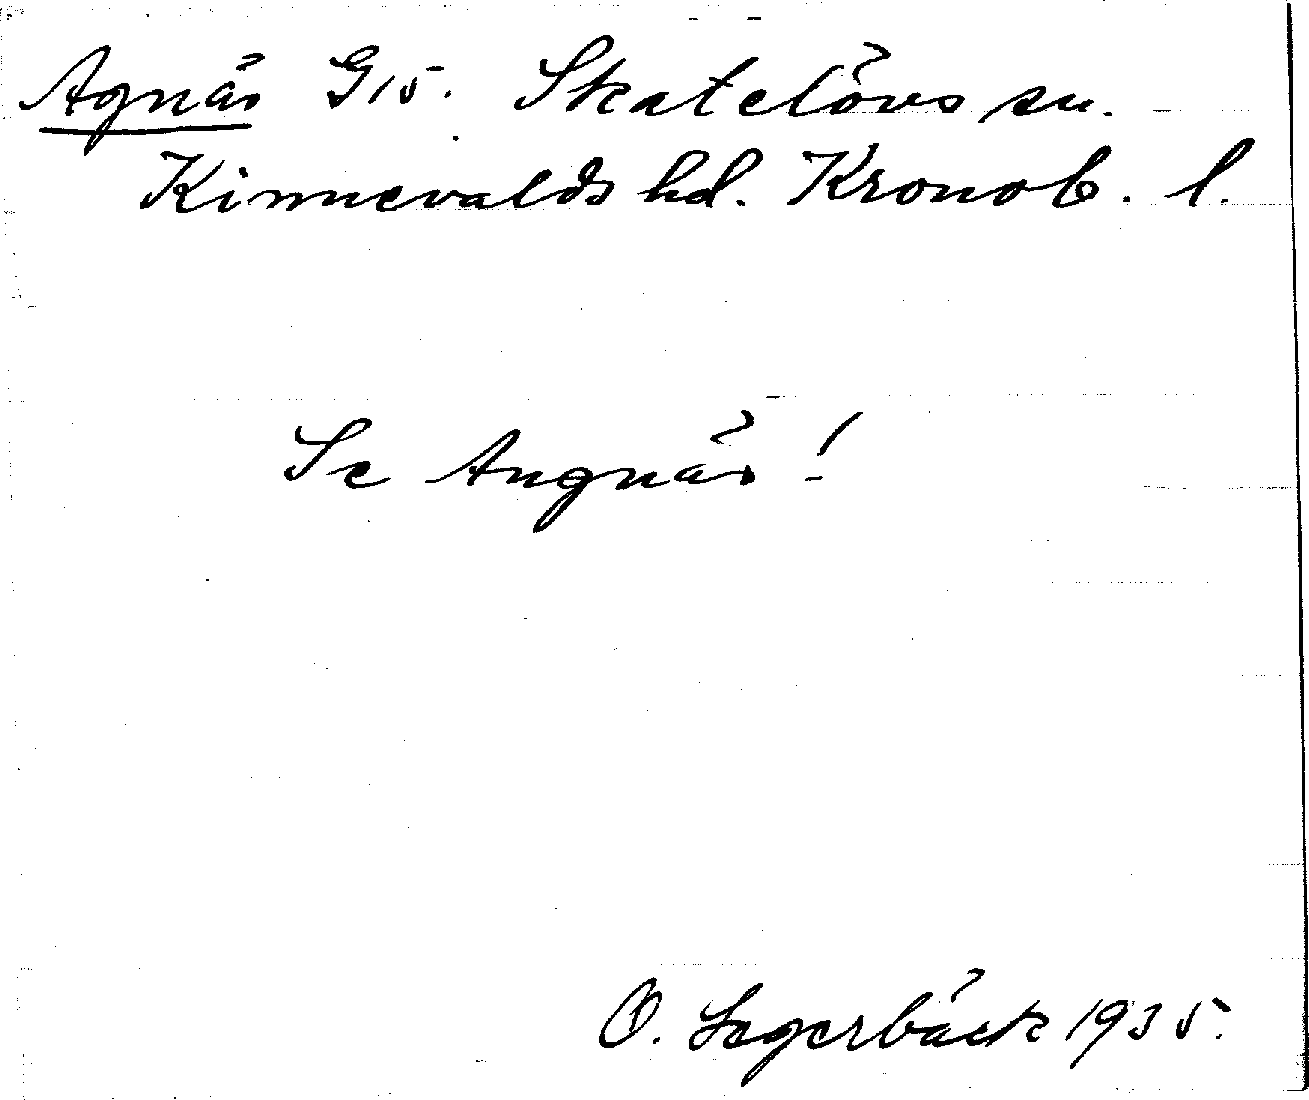 Agnäs G15. Skatelövs sn.
Kinnevalds hd. Kronob. l.
Se Angnäs!
O. Segerbäck 1935.